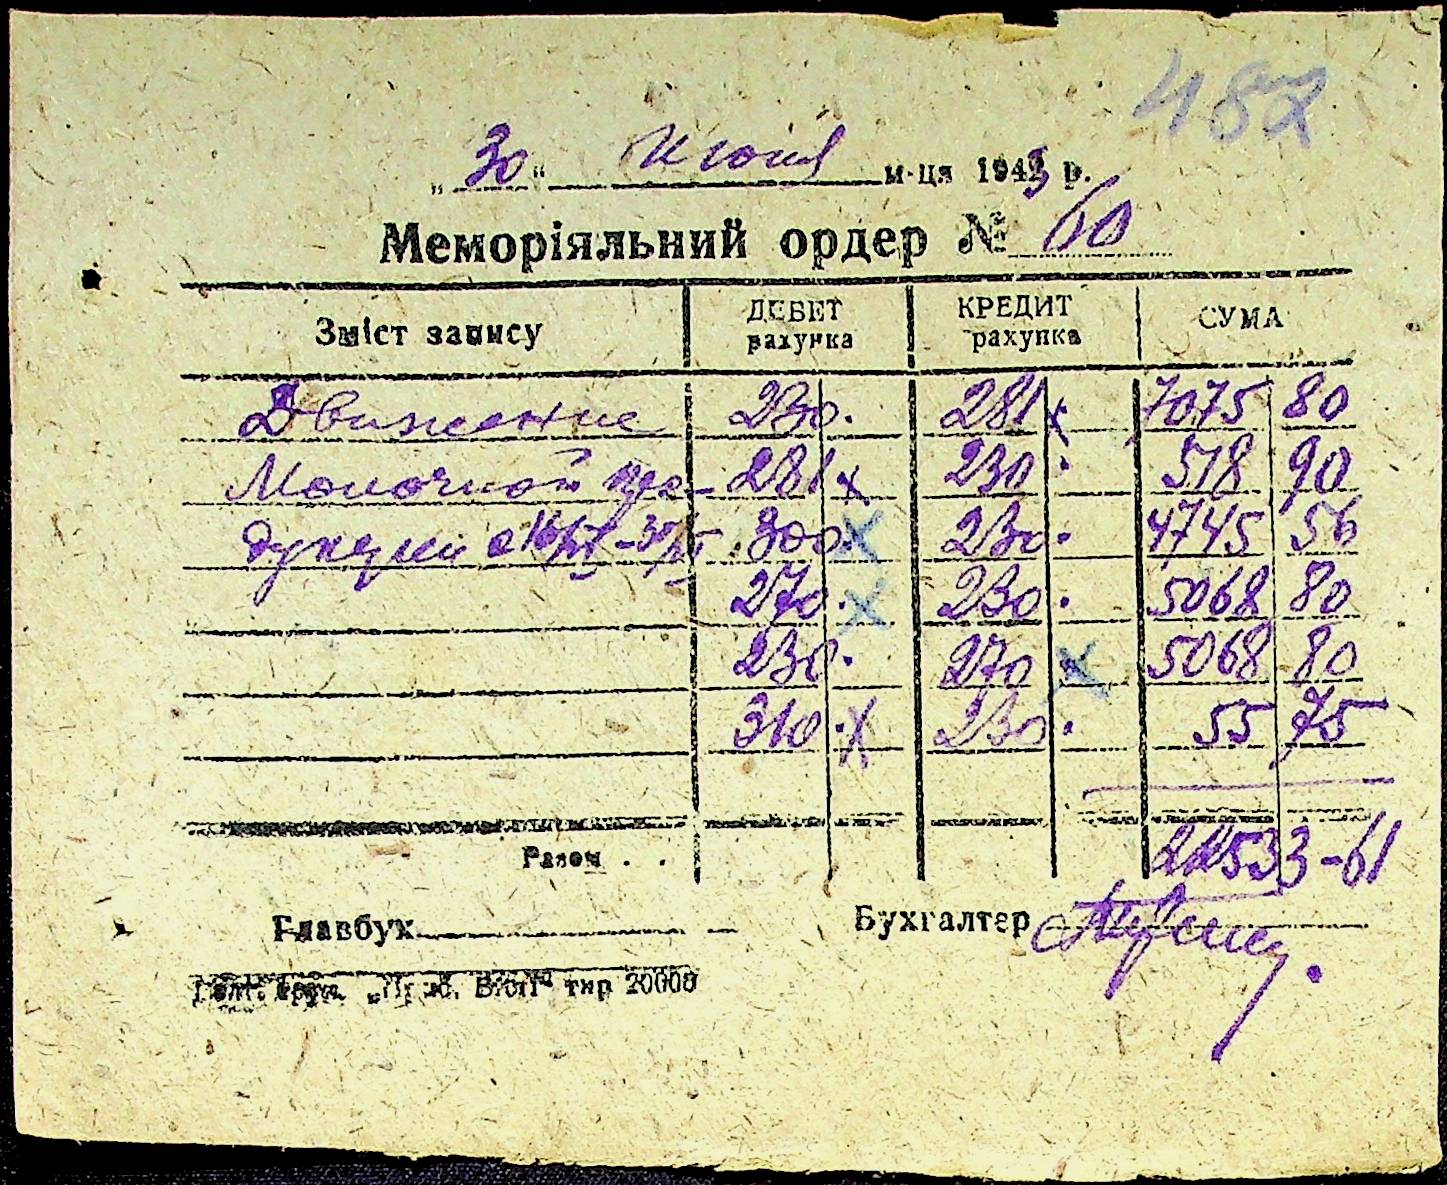 482
„30“ Июня м-ця 1943 р.
Меморіяльний ордер № 60
Зміст запису ДЕБЕТ рахунка КРЕДИТ рахунка СУМА
Движение 230. 281 x 7075 80
Молочной про- 281 x 230. 518 90
дукции с 16/VI-30/VI 300. x 230. 4745 56
270. x 230. 5068 80
230. 270 x 5068 80
310. x 230. 55 75
Разом . . 22533-61
Главбух Бухгалтер
тир 20000